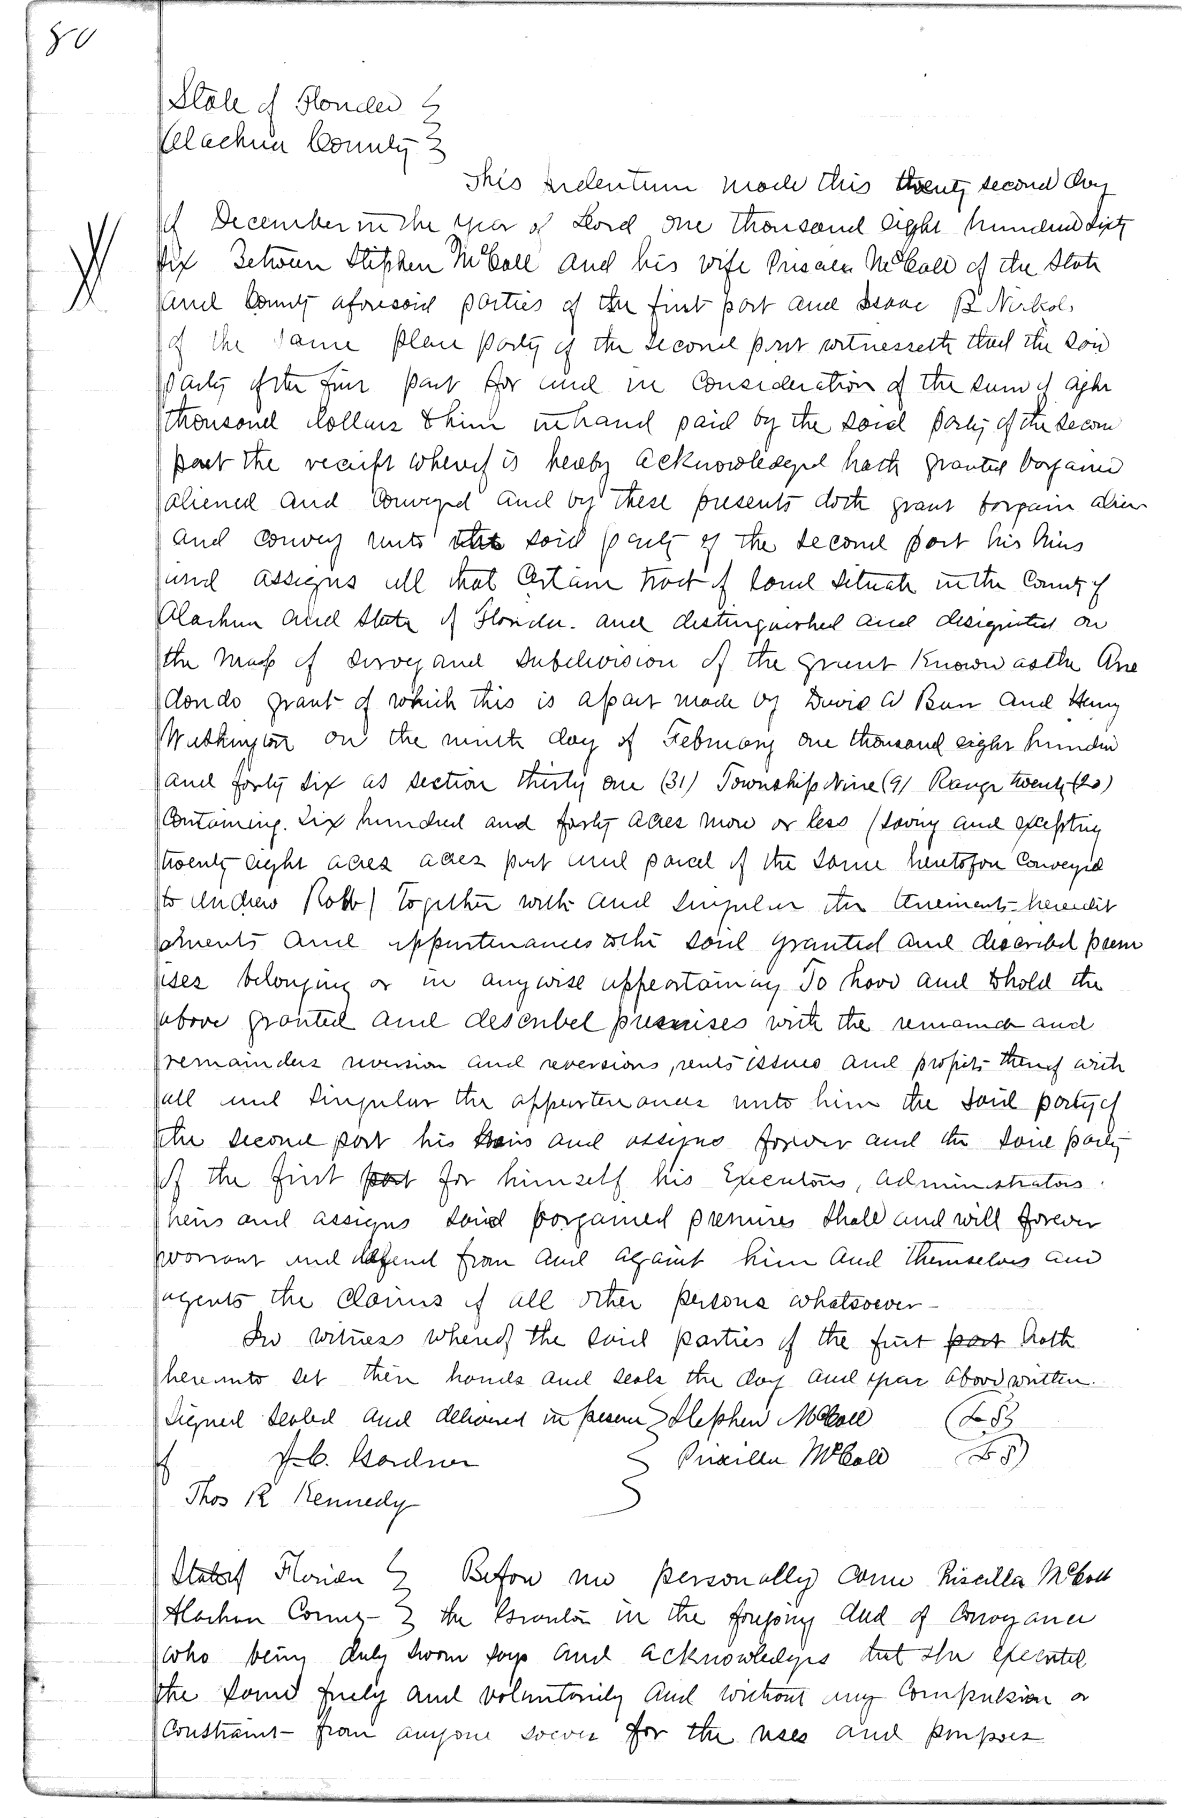 80
State of Florida
Alachua County
This indenture made this twenty second day
of December in the year of Lord one thousand eight hundred sixty
six Between Stephen McCall and his wife Priscilla McCall of the State
and County aforesaid parties of the first part and Isaac B Nichols
of the same place party of the second part witnesseth that the said
party of the first part for and in consideration of the sum of eight
thousand dollars to him in hand paid by the said party of the second
part the receipt whereof is hereby acknowledged hath granted bargained
aliened and conveyed and by these presents doth grant bargain alien
and convey unto the said party of the second part his heirs
and assigns all that certain tract of land situate in the County of
Alachua and State of Florida. and distinguished and designated on
the Map of Survey and subdivision of the grant known as the Arre
dondo grant of which this is a part made by David W Burr and Henry
Washington on the ninth day of February one thousand eight hundred
and forty six as section thirty one (31) Township Nine (9) Range twenty (20)
Containing. Six hundred and forty acres more or less (saving and excepting
twenty eight acres acres part and parcel of the same heretofore conveyed
to Andrew Robb) together with and singular the tenements heredit
aments and appurtenances to the said granted and described prem
ises belonging or in anywise appertaining To have and to hold the
above granted and described premises with the remainder and
remainders reversion and reversions, rents issues and profits thereof with
all and singular the appurtenances unto him the said party of
the second part his heirs and assigns forever and the said party
of the first part for himself his Executors, administrators.
heirs and assigns said bargained premises shall and will forever
warrant and defend from and against him and themselves and
agents the claims of all other persons whatsoever—
In witness whereof the said parties of the first part hath
hereunto set their hands and seals the day and year above written.
Signed sealed and delivered in presence Stephen McCall (L S)
of J. C. Gardner Priscilla McCall (L S)
Thos R Kennedy
State of Florida Before me personally came Priscilla McCall
Alachua County the Grantor in the foregoing deed of conveyance
who being duly sworn says and acknowledges that she executed
the same freely and voluntarily and without any compulsion or
constraint— from anyone soever for the uses and purposes